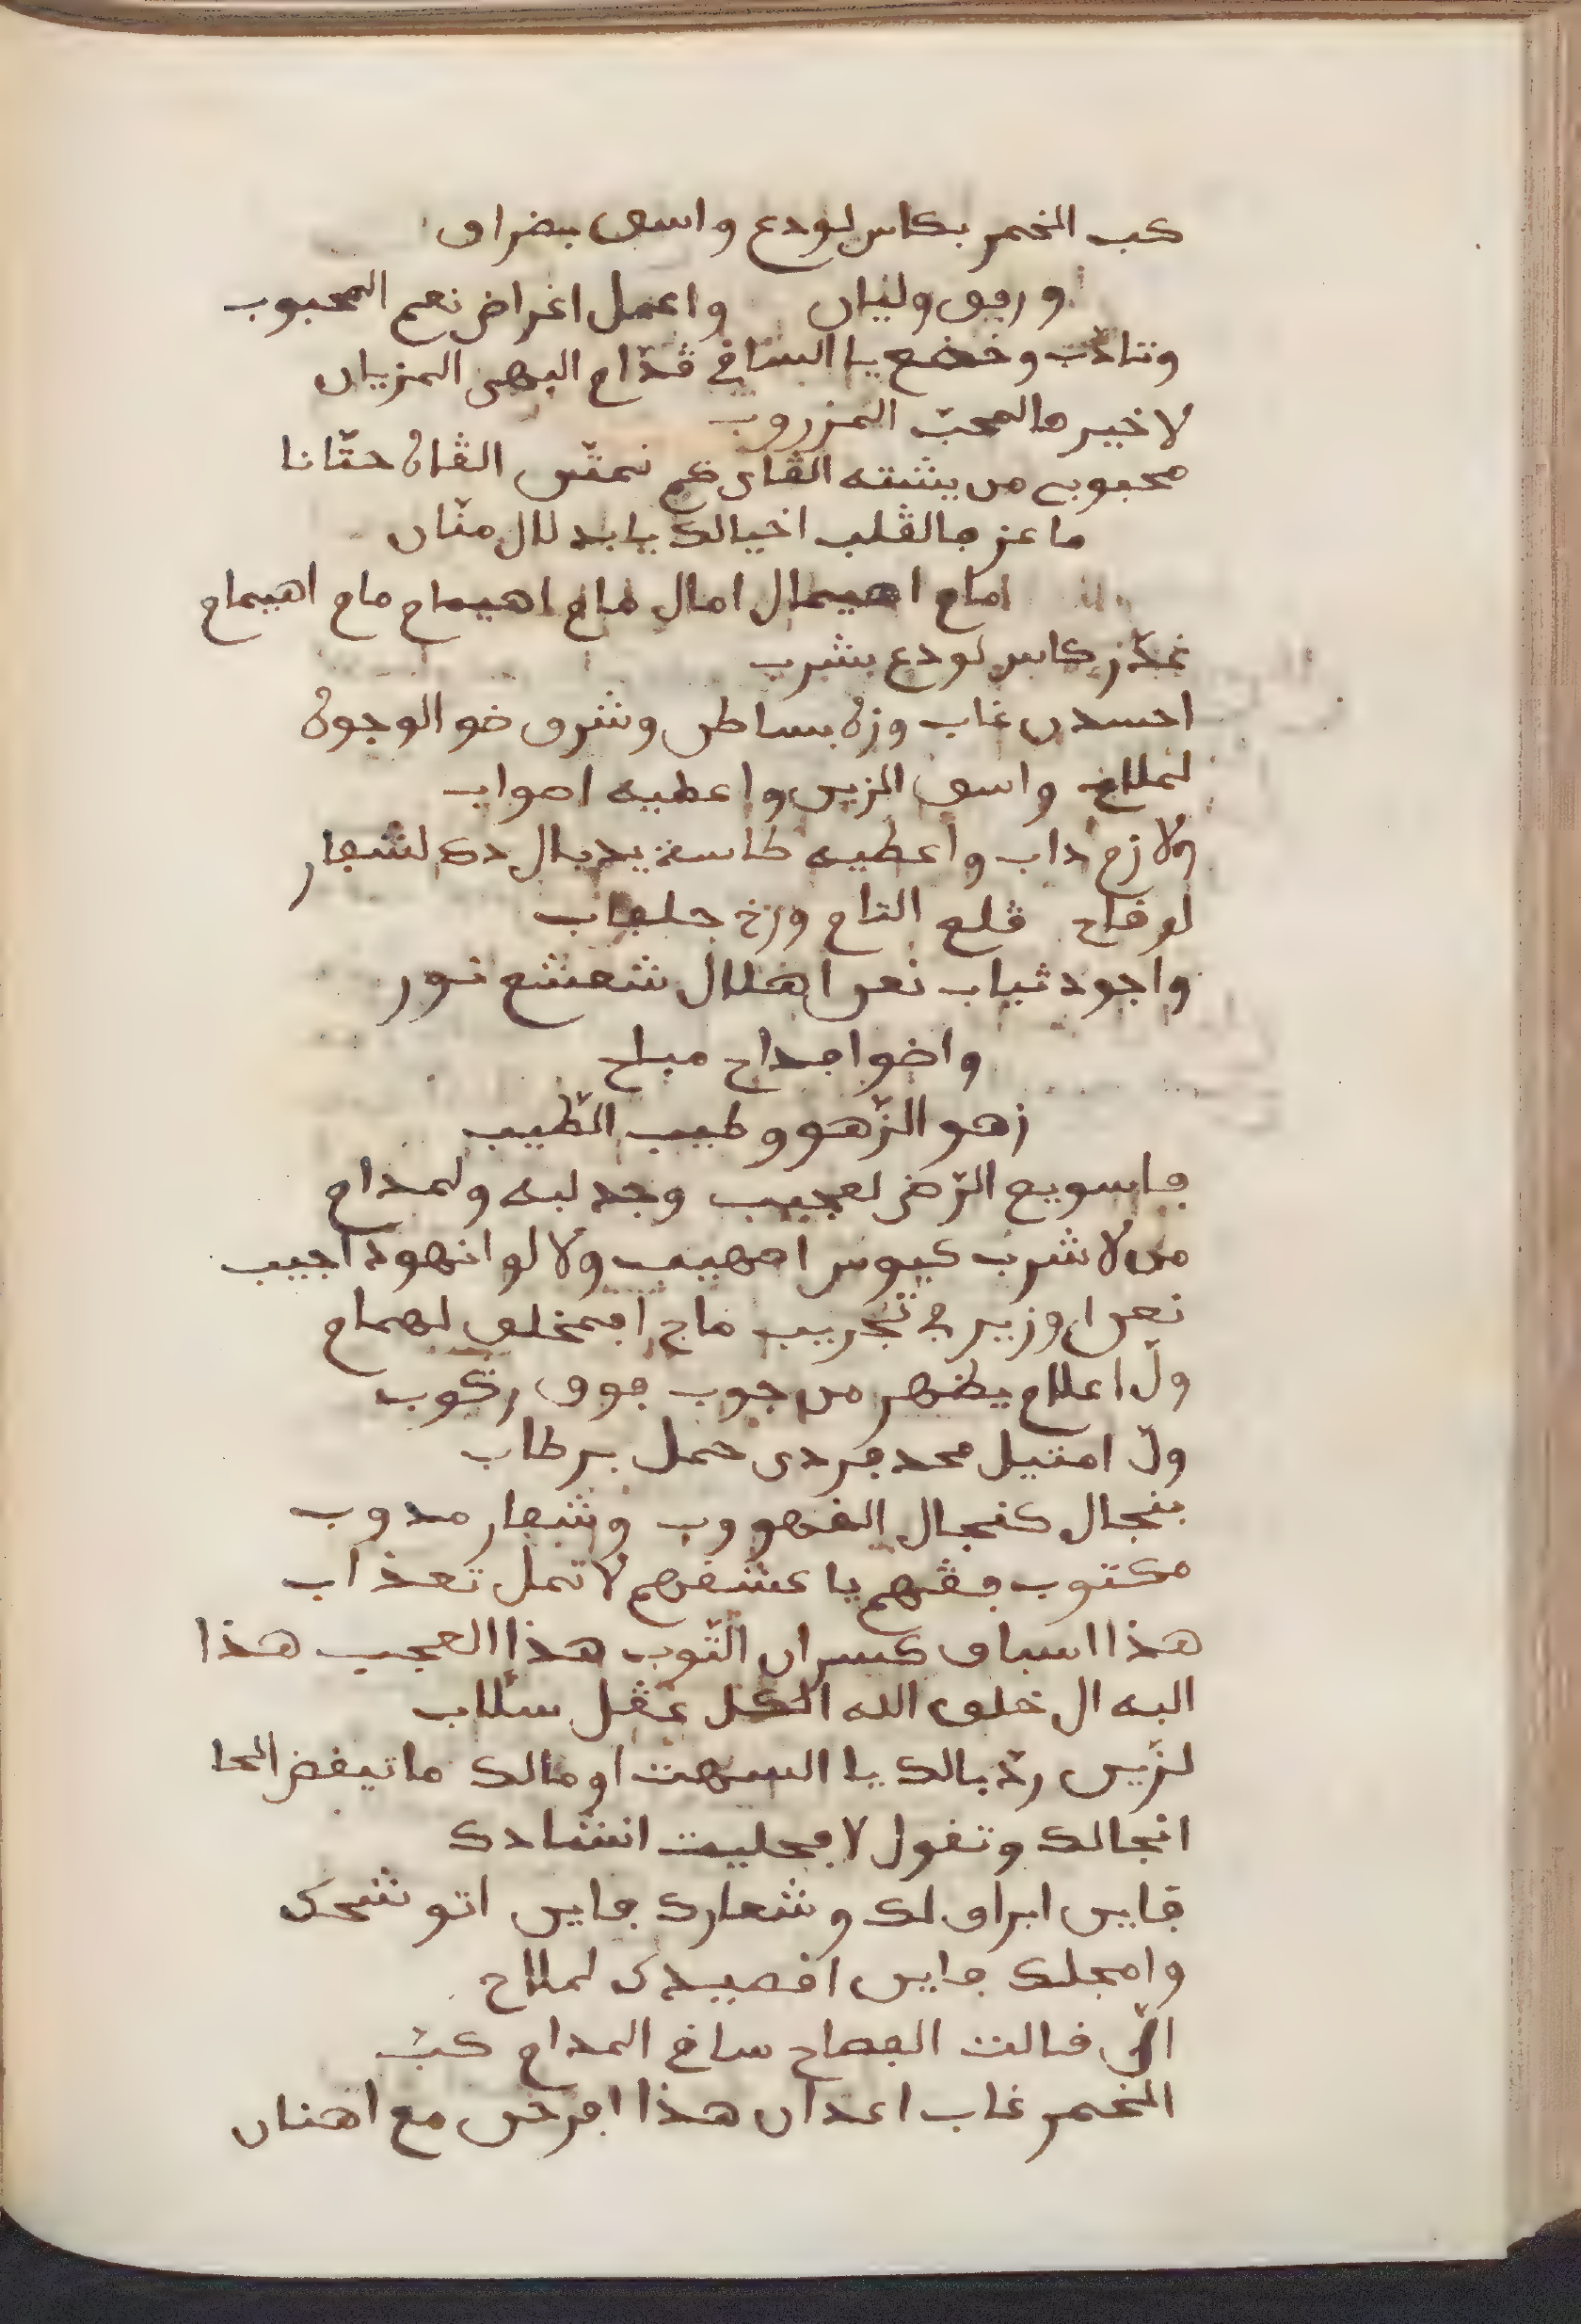 كب الخمر بكاس لودع واسق بضراف
ورفق وليان واعمل اغراض نعم المحبوب
وتنادّب وخضع يا الساقي ڤدّام البهى المزيان
لا خير فالمحبّ المزروب
محبوبى من يشته الڤاى نمتّى الڤاه حتّانا
ما عز فالڤلب اخيالك يا بدلال متّان
امام اهيمال امال مام اهيمام مام اهيمام
كاس لودع بشرب
احسدن غاب وزه بساطى وشرف ضو الوجوه
لملاح واسق الزين واعطيه اصواب
ولازم داب واعطيه طاسة يديال دك لشفار
لو فاح ڤلع التاح ورخ جلباب
واجود ثياب نعى اهلال شعشع نور
واضوا مداح مباح
زهو الزّهو وطيب الطّيب
فاسويع الرّضى لعجيب وجد لبه ولمدام
من لا شرب كيوس اصهيب ولا لو انهود اجيب
نعى اوزير فى تجريب ماج افمخلى لهمام
ولّ اعلام يظهر من جوب فوق ركوب
ولّ امتيل محد فردى حمل برطاب
بنجال كنجال الفهووب وشفار مدوب
مكتوب فڤهم يا عشفهم لا تمل تعذاب
هذا اسباف كسران التّوب هذا العجب هذا
البه ال خلق الله الكل عڤل سلّاب
لزّين ردّ بالك يا السهت او مالك ما تيفض الحا
انجالك وتفول لا فحليت انشادك
فايى ابراو لك وشعارك فايى اتوشحك
وامجلك فايى افصيدى لملاح
الّى فالت الفصاح ساقي المدام كبّ
الخمر غاب اعدان هذا افرحى مع اهنان